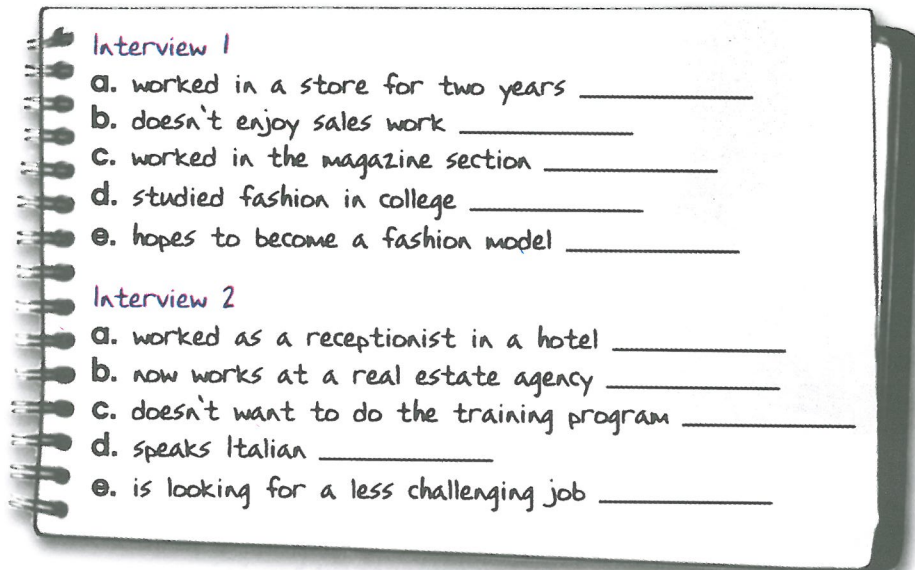 Interview 1
a. worked in a store for two years
b. doesn't enjoy sales work
c. worked in the magazine section
d. studied fashion in college
e. hopes to become a fashion model
Interview 2
a. worked as a receptionist in a hotel
b. now works at a real estate agency
c. doesn't want to do the training program
d. speaks Italian
e. is looking for a less challenging job